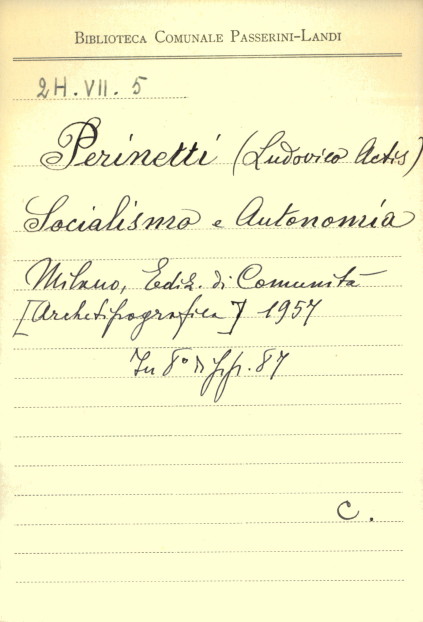 BIBLIOTECA COMUNALE PASSERINI-LANDI
2H. VII. 5
Perinetti (Ludovico Actis)
Socialismo e Autonomia
Milano, Ediz. di Comunità
[Archetipografica] 1957
In 8° di pp. 87
C.